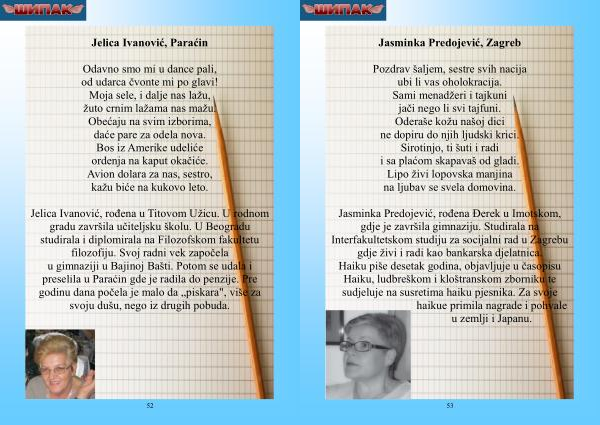 ШИПАК
Jelica Ivanović, Paraćin
Odavno smo mi u dance pali,
od udarca čvonte mi po glavi!
Moja sele, i dalje nas lažu,
žuto crnim lažama nas mažu!
Obećaju na svim izborima,
daće pare za odela nova.
Bos iz Amerike udeliće
ordenja na kaput okačiće.
Avion dolara za nas, sestro,
kažu biće na kukovo leto.
Jelica Ivanović, rođena u Titovom Užicu. U rodnom
gradu završila učiteljsku školu. U Beogradu
studirala i diplomirala na Filozofskom fakultetu
filozofiju. Svoj radni vek započela
u gimnaziji u Bajinoj Bašti. Potom se udala i
preselila u Paraćin gde je radila do penzije. Pre
godinu dana počela je malo da „piskara", više za
svoju dušu, nego iz drugih pobuda.
52
ШИПАК
Jasminka Predojević, Zagreb
Pozdrav šaljem, sestre svih nacija
ubi li vas oholokracija.
Sami menadžeri i tajkuni
jači nego li svi tajfuni.
Oderaše kožu našoj dici
ne dopiru do njih ljudski krici.
Sirotinjo, ti šuti i radi
i sa plaćom skapavaš od gladi.
Lipo živi lopovska manjina
na ljubav se svela domovina.
Jasminka Predojević, rođena Đerek u Imotskom,
gdje je završila gimnaziju. Studirala na
Interfakultetskom studiju za socijalni rad u Zagrebu
gdje živi i radi kao bankarska djelatnica.
Haiku piše desetak godina, objavljuje u časopisu
Haiku, ludbreškom i kloštranskom zborniku te
sudjeluje na susretima haiku pjesnika. Za svoje
haikue primila nagrade i pohvale
u zemlji i Japanu.
53